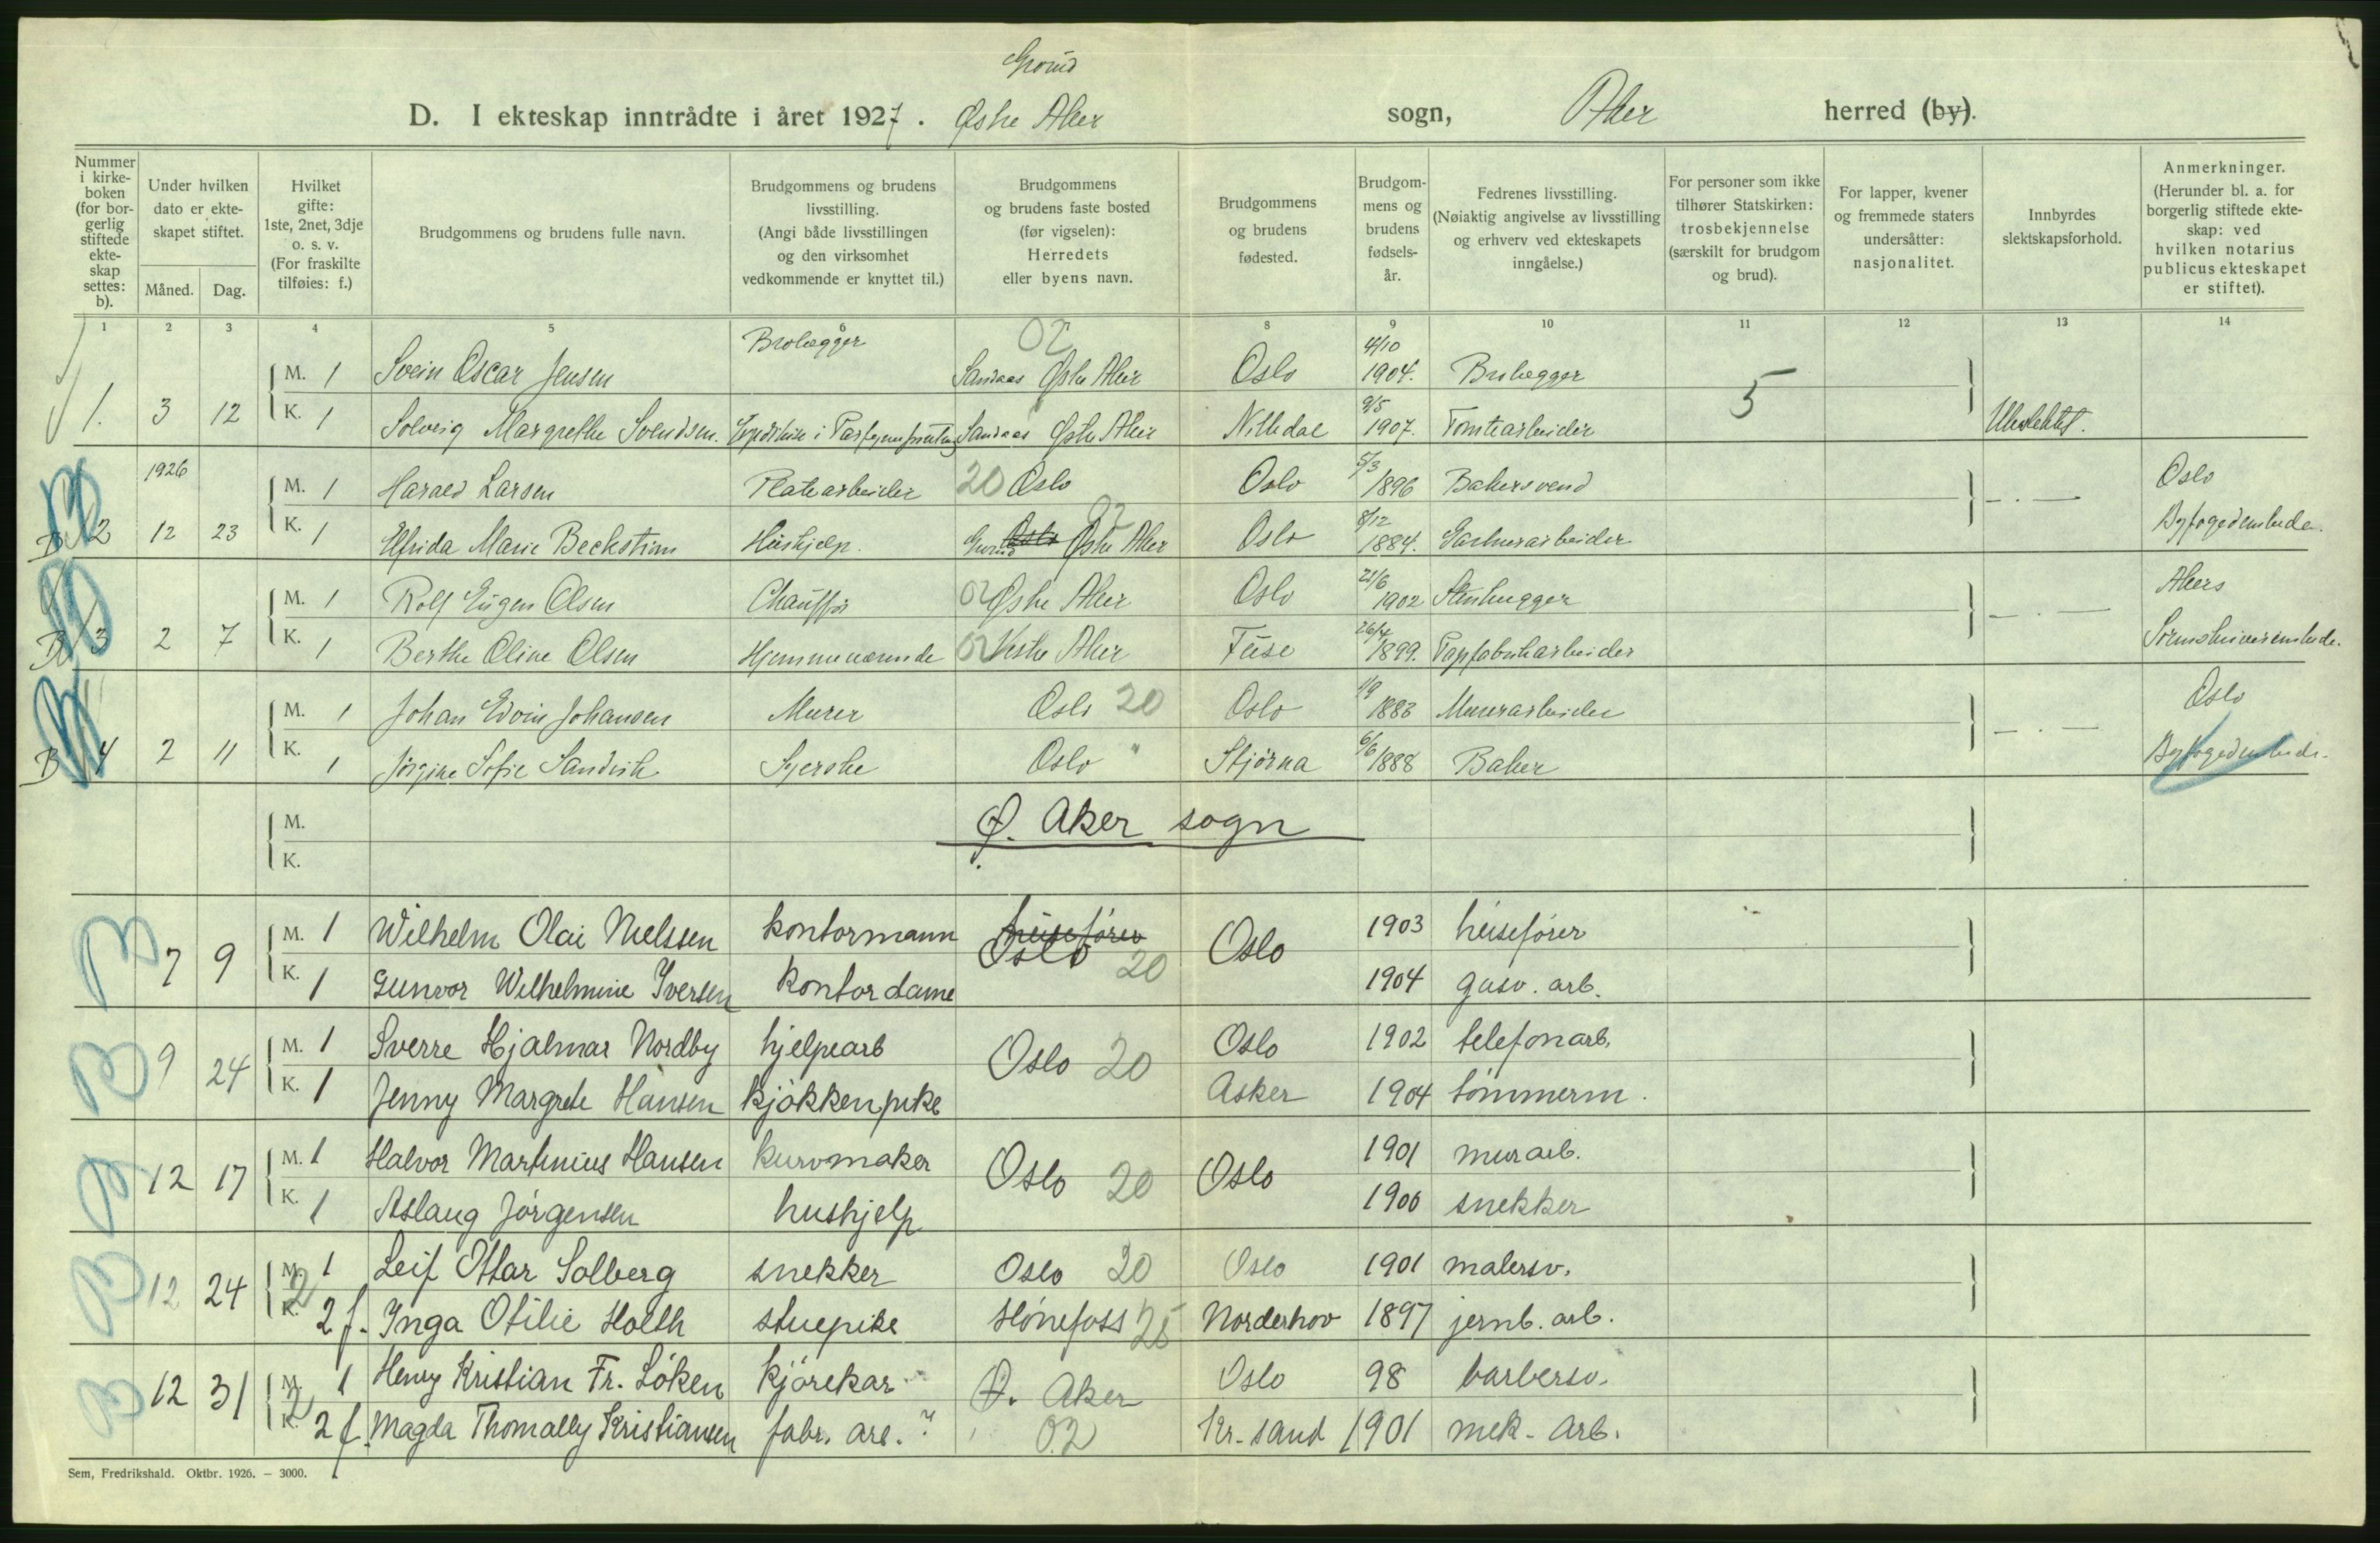 Grorud
D. I ekteskap inntrådte i året 1927. Østre Aker sogn, Aker herred (by).
Nummer i kirke-boken (for bor-gerlig stiftede ekte-skap settes: b).
Under hvilken dato er ekte-skapet stiftet.
Måned. Dag.
Hvilket gifte: 1ste, 2net, 3dje o. s. v. (For fraskilte tilføies: f.)
Brudgommens og brudens fulle navn.
Brudgommens og brudens livsstilling. (Angi både livsstillingen og den virksomhet vedkommende er knyttet til.)
Brudgommens og brudens faste bosted (før vigselen): Herredets eller byens navn.
Brudgommens og brudens fødested.
Brudgom-mens og brudens fødsels-år.
Fedrenes livsstilling. (Nøiaktig angivelse av livsstilling og erhverv ved ekteskapets inngåelse.)
For personer som ikke tilhører Statskirken: trosbekjennelse (særskilt for brudgom og brud).
For lapper, kvener og fremmede staters undersåtter: nasjonalitet.
Innbyrdes slektskapsforhold.
Anmerkninger. (Herunder bl. a. for borgerlig stiftede ekte-skap: ved hvilken notarius publicus ekteskapet er stiftet).
1 2 3 4 5 6 8 9 10 11 12 13 14
M. 1 Svein Oscar Jensen Brolegger 02 Sandaas Østre Aker Oslo 4/10 1904. Brolegger 5
1. 3 12 K. 1 Solveig Margrethe Svendsen. Sandaas Østre Aker Nittedal 9/5 1907. Tomtearbeider Ubeslektet.
1926 M. 1 Harald Larsen Platearbeider 20 Oslo Oslo 5/3 1896 Bakersvend — . — Oslo
B 2 12 23 K. 1 Elfrida Marie Beckstrøm Hushjelp. Grorud Oslo Østre Aker 02 Oslo 8/12 1884. Gartnerarbeider Byfogedembede.
M. 1 Rolf Eugen Olsen Chauffør 02 Østre Aker Oslo 21/6 1902 Stenhugger — . — Akers
B 3 2 7 K. 1 Berthe Oline Olsen Hjemmeværende 02 Vestre Aker Fuse 26/4 1899. Papfabrikarbeider Sorenskriverembede.
M. 1 Johan Edvin Johansen Murer Oslo 20 Oslo 1/9 1883 Murerarbeider — . — Oslo
B 4 2 11 K. 1 Jørgine Sofie Sandvik Syerske Oslo " Stjørna 6/6 1888 Baker Byfogedembede.
M.
K.
Ø. Aker sogn
B 7 9 M. 1 Wilhelm Olai Nielssen kontormann heisefører Oslo 20 Oslo 1903 heisefører
K. 1 Gunvor Wilhelmine Iversen kontordame 1904 gasv. arb.
B 9 24 M. 1 Sverre Hjalmar Nordby hjelpearb Oslo 20 Oslo 1902 telefonarb.
K. 1 Jenny Margrete Hansen kjøkkenpike Asker 1904 tømmerm.
B 12 17 M. 1 Halvor Martinius Hansen kurvmaker Oslo 20 Oslo 1901 murarb.
K. 1 Aslaug Jørgensen hushjelp 1906 snekker
B 12 24 M. 1 Leif Ottar Solberg snekker Oslo 20 Oslo 1901 malersv.
2 K. 2 f. Inga Otilie Holth stuepike Hønefoss 25 Norderhov 1897 jernb. arb.
B 12 31 M. 1 Henry Kristian Fr. Løken kjørekar Ø. Aker Oslo 98 barbersv.
2 K. 2 f. Magda Thomally Kristiansen fabr. arb. ? 02 Kr-sand 1901 mek. arb.
Sem, Fredrikshald. Oktbr. 1926. — 3000.